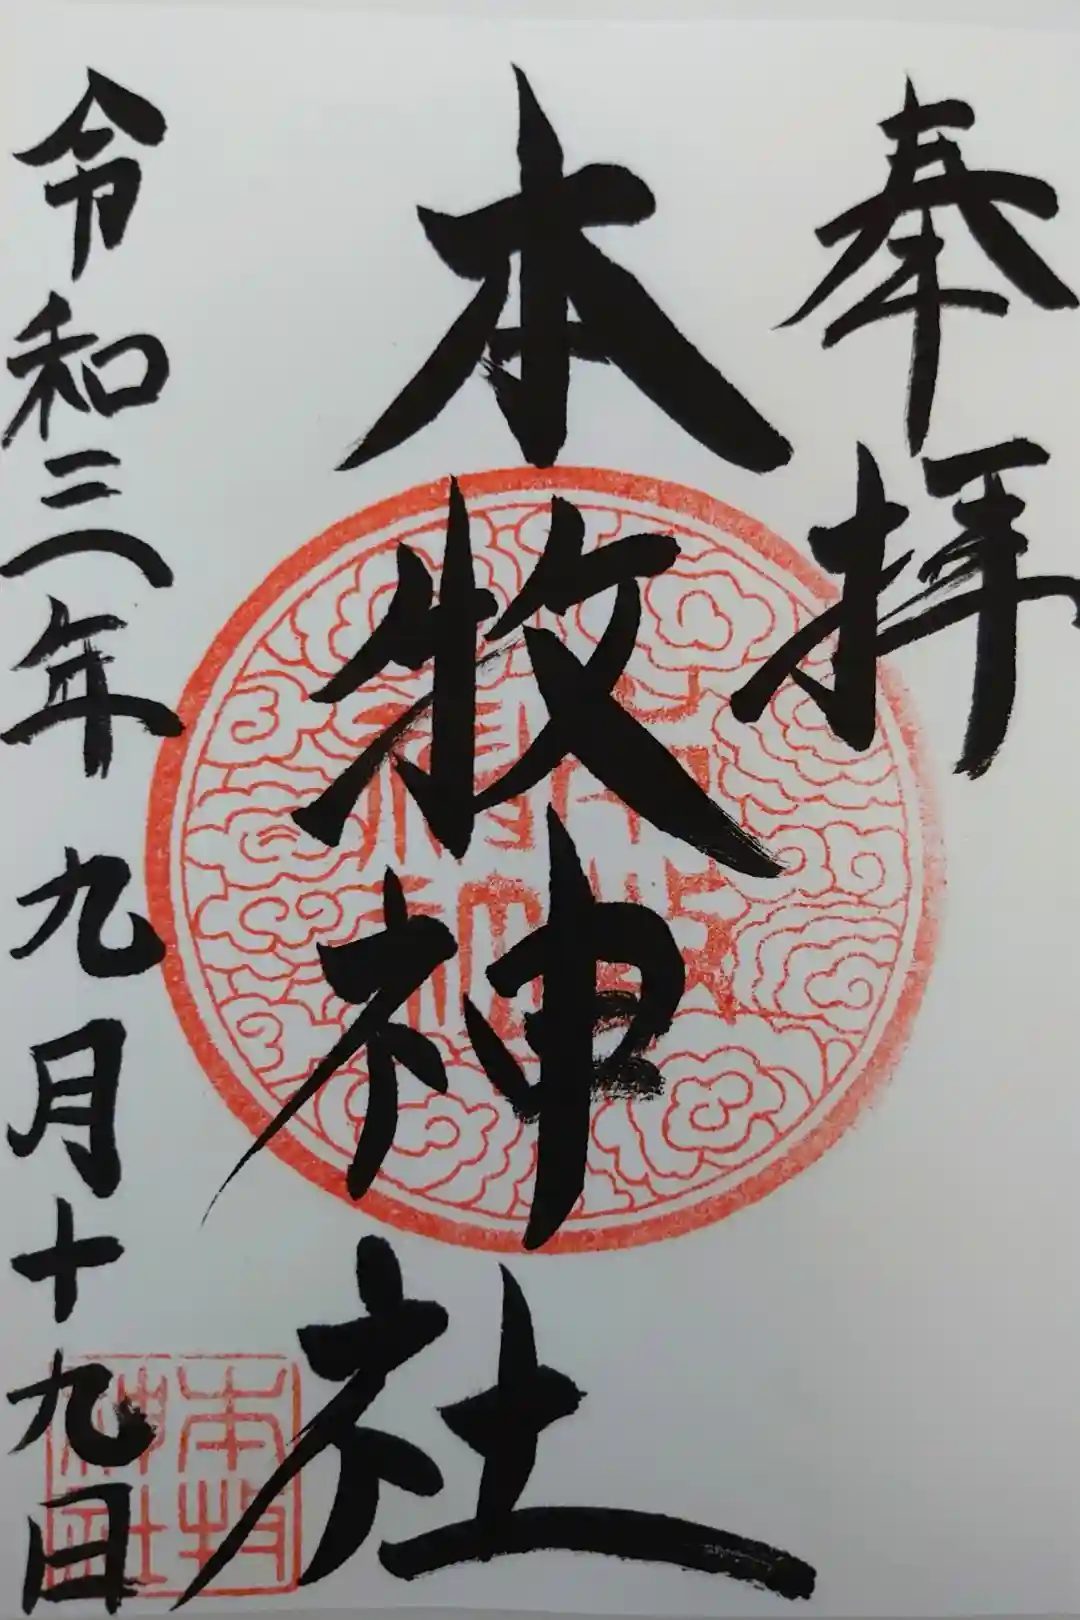 奉拝
本牧神社
令和三年九月十九日
本牧
神社